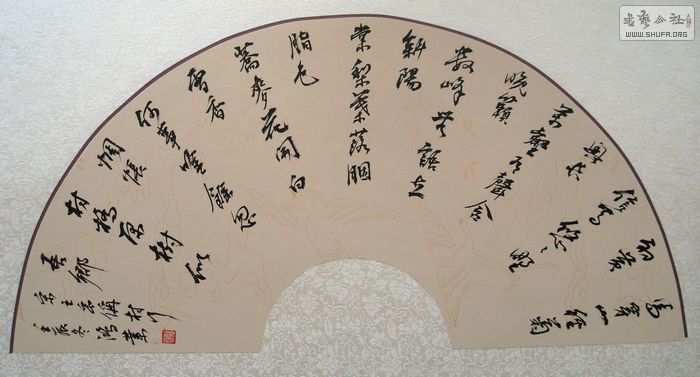 馬穿山徑菊
初黃
信馬悠悠野
興長
萬壑有聲含
晚籟
數峰無語立
斜陽
棠梨葉落胭
脂色
蕎麥花開白
雪香
何事吟餘忽
惆悵
村橋原樹似
吾鄉
宋王禹偁村行
壬辰冬鴻業
WWW.SHUFA.ORG